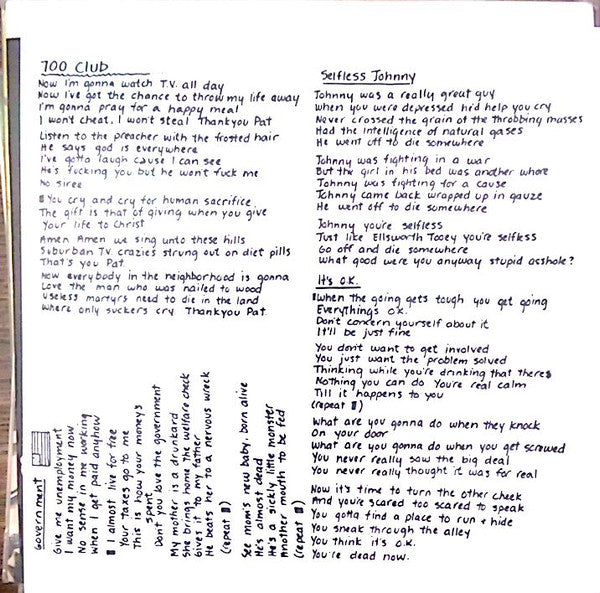 700 Club
Now I'm gonna watch T.V. all day
Now I've got the chance to throw my life away
I'm gonna pray for a happy meal
I won't cheat. I won't steal Thankyou Pat
Listen to the preacher with the frosted hair
He says god is everywhere
I've gotta laugh cause I can see
He's fucking you but he won't fuck me
No siree
You cry and cry for human sacrifice
The gift is that of giving when you give
Your life to Christ
Amen Amen we sing unto these hills
Suburban TV crazies strung out on diet pills
That's you Pat
Now everybody in the neighborhood is gonna
Love the man who was nailed to wood
Useless martyrs need to die in the land
where only suckers cry Thankyou Pat
Government
Give my unemployment
I want my money now
No sense in me working
When I get paid anyhow
I almost live for free
Your taxes go to me
This is how your money's
spent
Don't you love the government
My mother is a drunkard
She brings home the welfare check
Gives it to my father
He beats her to a nervous wreck
(repeat)
See mom's new baby, born alive
He's almost dead
He's a sickly little monster
Another mouth to be fed
(repeat)
Selfless Johnny
Johnny was a really great guy
When you were depressed he'd help you cry
Never crossed the grain of the throbbing masses
Had the intelligence of natural gases
He went off to die somewhere
Johnny was fighting in a war
But the girl in his bed was another whore
Johnny was fighting for a cause
Johnny came back wrapped up in gauze
He went off to die somewhere
Johnny you're selfless
Just like Ellsworth Tooey you're selfless
Go off and die somewhere
What good were you anyway stupid asshole?
It's O.K.
When the going gets tough you get going
Everything's o.k.
Don't concern yourself about it
It'll be just fine
You don't want to get involved
You just want the problem solved
Thinking while you're drinking that theres
Nothing you can do You're real calm
Till it happens to you
(repeat)
What are you gonna do when they knock
On your door
What are you gonna do when you get screwed
You never really saw the big deal
You never really thought it was for real
Now it's time to turn the other cheek
And you're scared too scared to speak
You gotta find a place to run + hide
You sneak through the alley
You think it's O.K.
You're dead now.